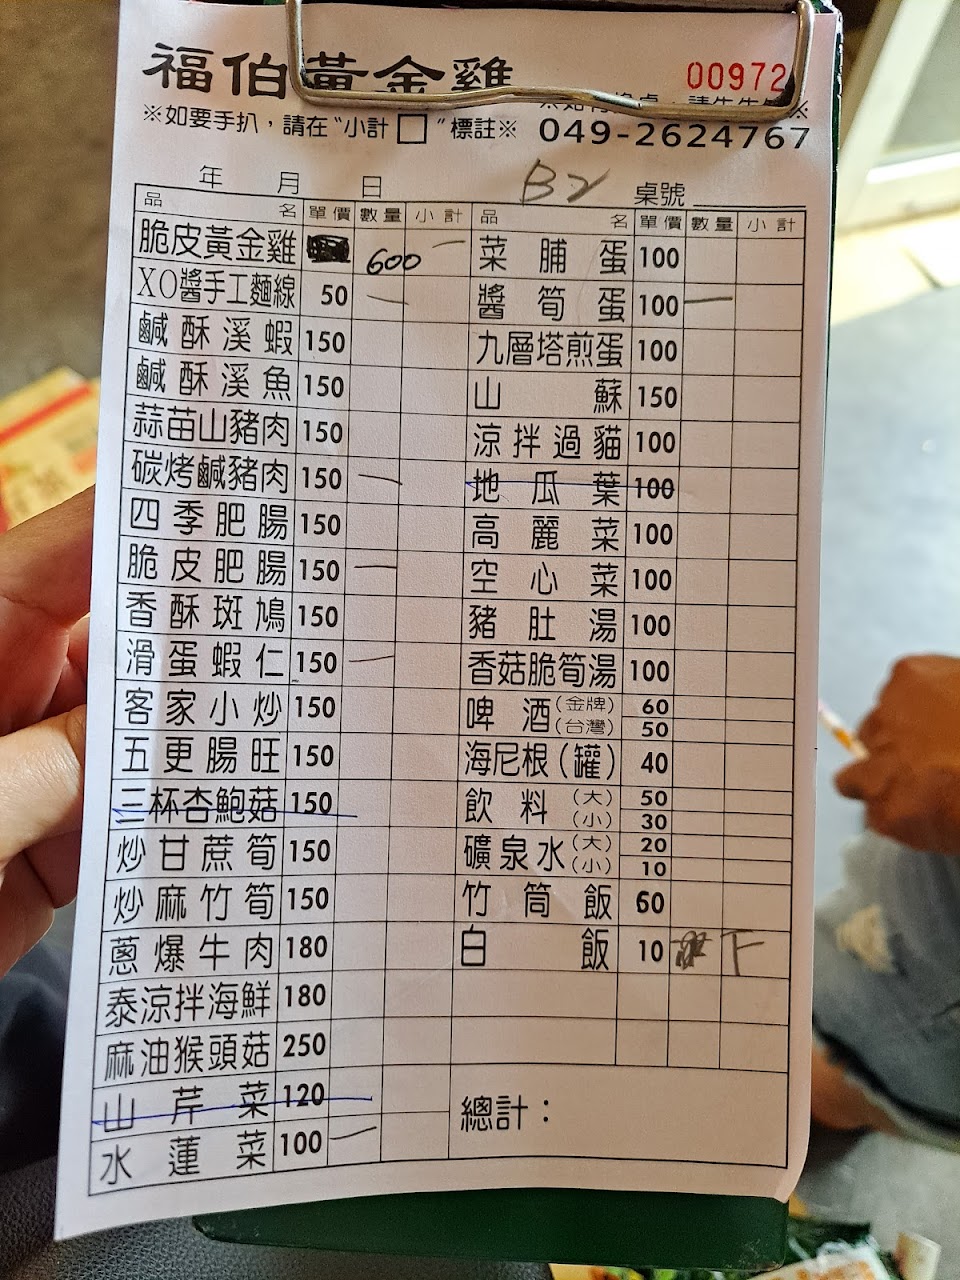 福伯黃金雞
00972
※如要手扒，請在“小計□”標註※
049-2624767
年 月 日 B2 桌號
品名 單價 數量 小計
脆皮黃金雞 600 一
XO醬手工麵線 50 一
鹹酥溪蝦 150
鹹酥溪魚 150
蒜苗山豬肉 150
碳烤鹹豬肉 150 一
四季肥腸 150
脆皮肥腸 150 一
香酥斑鳩 150
滑蛋蝦仁 150 一
客家小炒 150
五更腸旺 150
三杯杏鮑菇 150
炒甘蔗筍 150
炒麻竹筍 150
蔥爆牛肉 180
泰涼拌海鮮 180
麻油猴頭菇 250
山芹菜 120
水蓮菜 100 一
品名 單價 數量 小計
菜脯蛋 100
醬筍蛋 100 一
九層塔煎蛋 100
山蘇 150
涼拌過貓 100
地瓜葉 100
高麗菜 100
空心菜 100
豬肚湯 100
香菇脆筍湯 100
啤酒 (金牌) 60
(台灣) 50
海尼根(罐) 40
飲料 (大) 50
(小) 30
礦泉水 (大) 20
(小) 10
竹筒飯 60
白飯 10 下
總計：